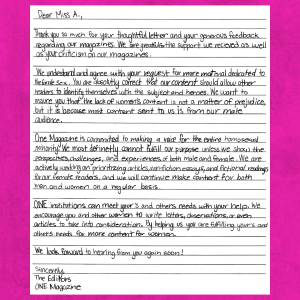 Dear Miss A.,
Thank you so much for your thoughtful letter and your generous feedback
regarding our magazines. We are grateful the support we recieved as well
as your criticism on our magazines.
We understand and agree with your request for more material dedicated to
female. You are absolutely correct that our content should allow other
readers to identify themselves with the subject and heroes. We want to
assure you that the lack of women's content is not a matter of prejudice,
but it is because most content sent to us is from our male
audience.
One Magazine is committed to making a voice for the entire homosexual
minority. We most definetly cannot fulfill our purpose unless we show the
perspectives, challenges, and experiences of both male and female. We are
actively working on prioritizing articles, nonfiction essays, and fictional readings
for our female readers, and we will continue make content for both
men and women on a regular basis.
ONE institutions can meet your's and others needs with your help. We
encourage you and other women to write letters, observations, or even
articles to take into consideration. By helping us you are fulfilling yours and
others needs for more content for women.
We look forward to hearing from you again soon!
Sincerely,
The Editors
ONE Magazine